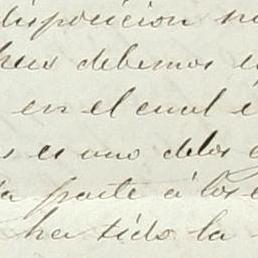 disposicion
debemos
en el cual
es uno delos
parte á los
ha sido la